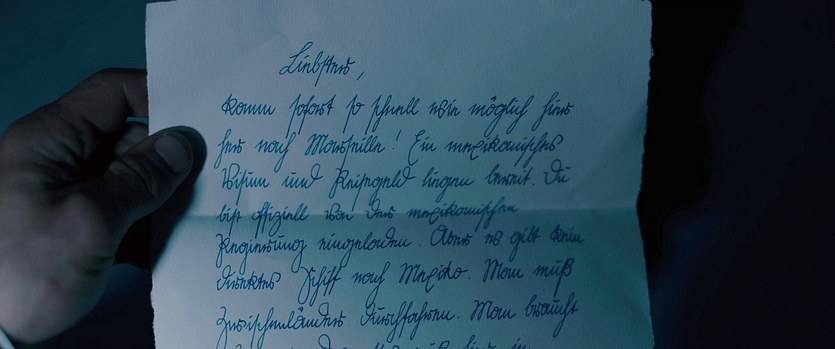 Liebster,
komm sofort so schnell wie möglich hier
her nach Marseille! Ein mexikanisches
Visum und Reisegeld liegen bereit. Du
bist offiziell von der mexikanischen
Regierung eingeladen. Aber es gibt kein
direktes Schiff nach Mexiko. Man muß
Zwischenländer durchfahren. Man braucht